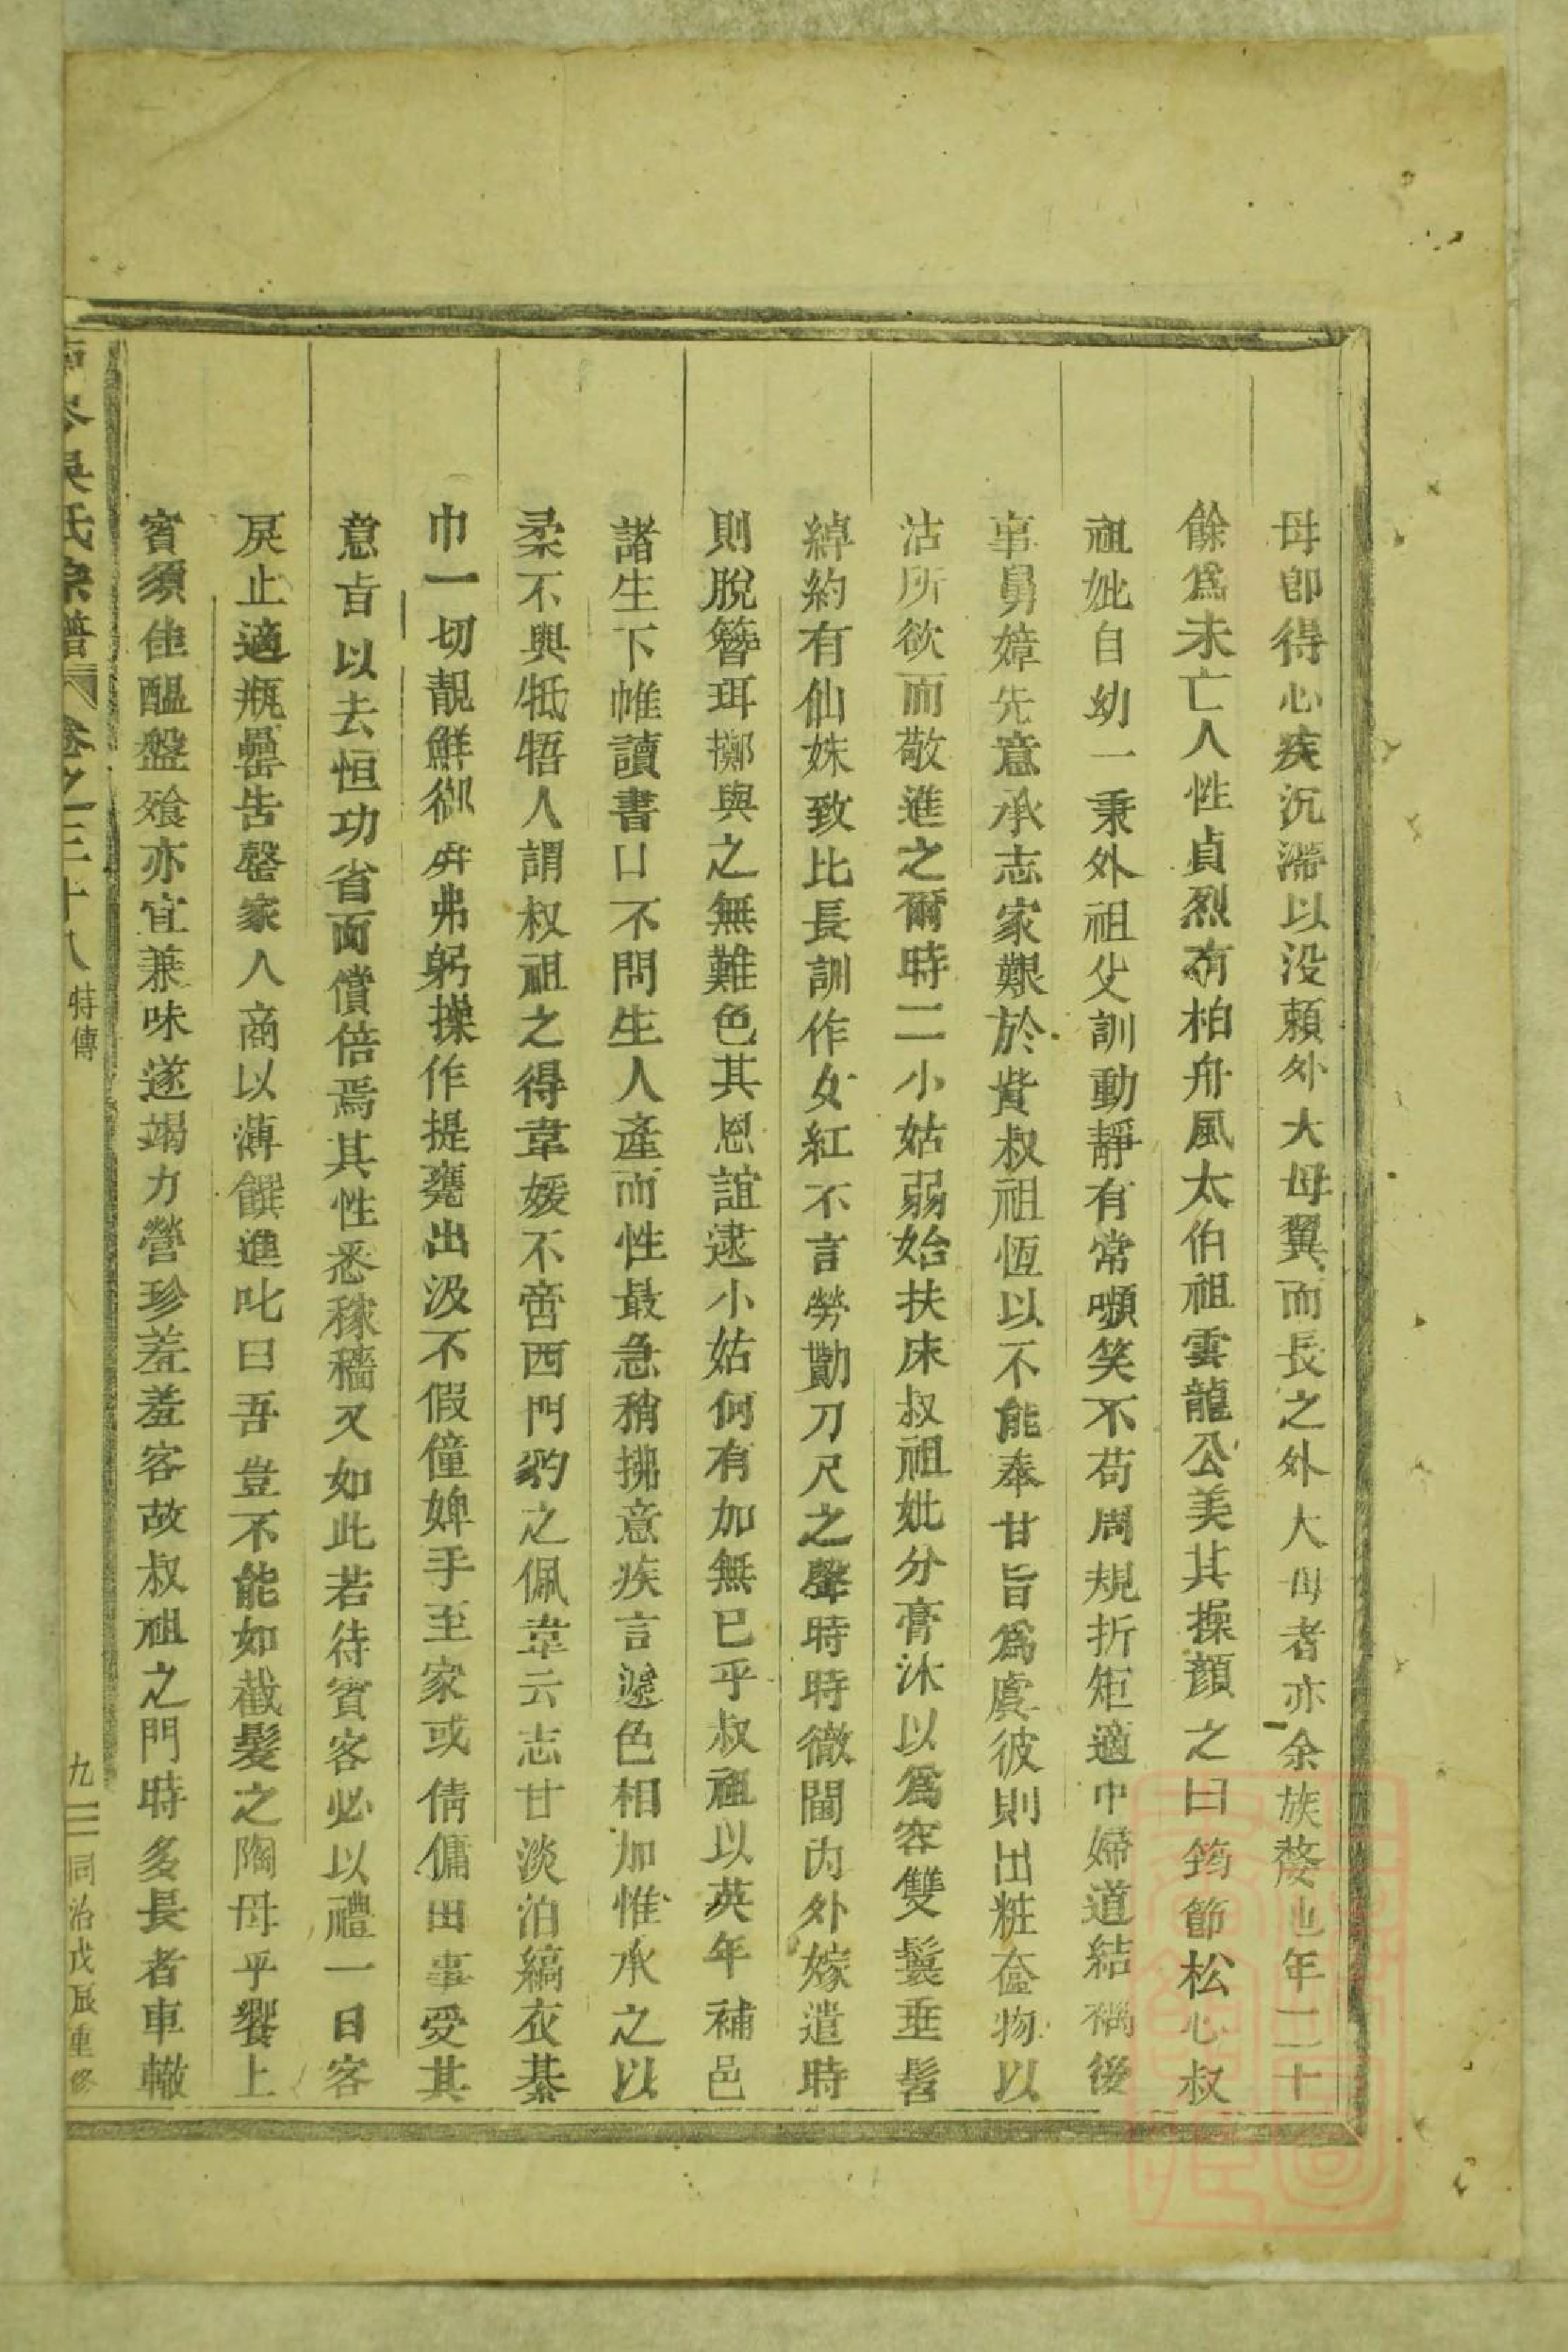 母卽得心疾沉滯以没賴外大母翼而長之外大母者亦余族婺也年二十
餘爲未亡人性貞烈有柏舟風太伯祖雲龍公美其操顏之曰筠節松心叔
祖妣自幼一秉外祖父訓動靜有常嚬笑不苟周規折矩適中婦道結褵後
事舅嫜先意承志家艱於貲叔祖恆以不能奉甘旨爲虞彼則出粧奩物以
沽所欲而敬進之爾時二小姑弱始扶床叔祖妣分膏沐以爲容雙鬟垂髫
綽約有仙姝致比長訓作女紅不言勞勩刀尺之聲時時徹閫內外嫁遣時
則脫簪珥擲與之無難色其恩誼逮小姑何有加無已乎叔祖以英年補邑
諸生下帷讀書口不問生人產而性最急稍拂意疾言遽色相加惟承之以
柔不與牴牾人謂叔祖之得韋媛不啻西門豹之佩韋云志甘淡泊縞衣綦
巾一切靚鮮御屏弗躬操作提甕出汲不假僮婢手至家或倩傭田事受其
意旨以去恒功省而償倍焉其性悉稼穡又如此若待賓客必以禮一日客
戾止適瓶罍告罄家人商以薄饌進叱曰吾豈不能如截髮之陶母乎饗上
賓須佳醞盤飱亦宜兼味遂竭力營珍羞羞客故叔祖之門時多長者車轍
吳氏宗譜 卷之三十八 特傳 九 同治戊辰重修